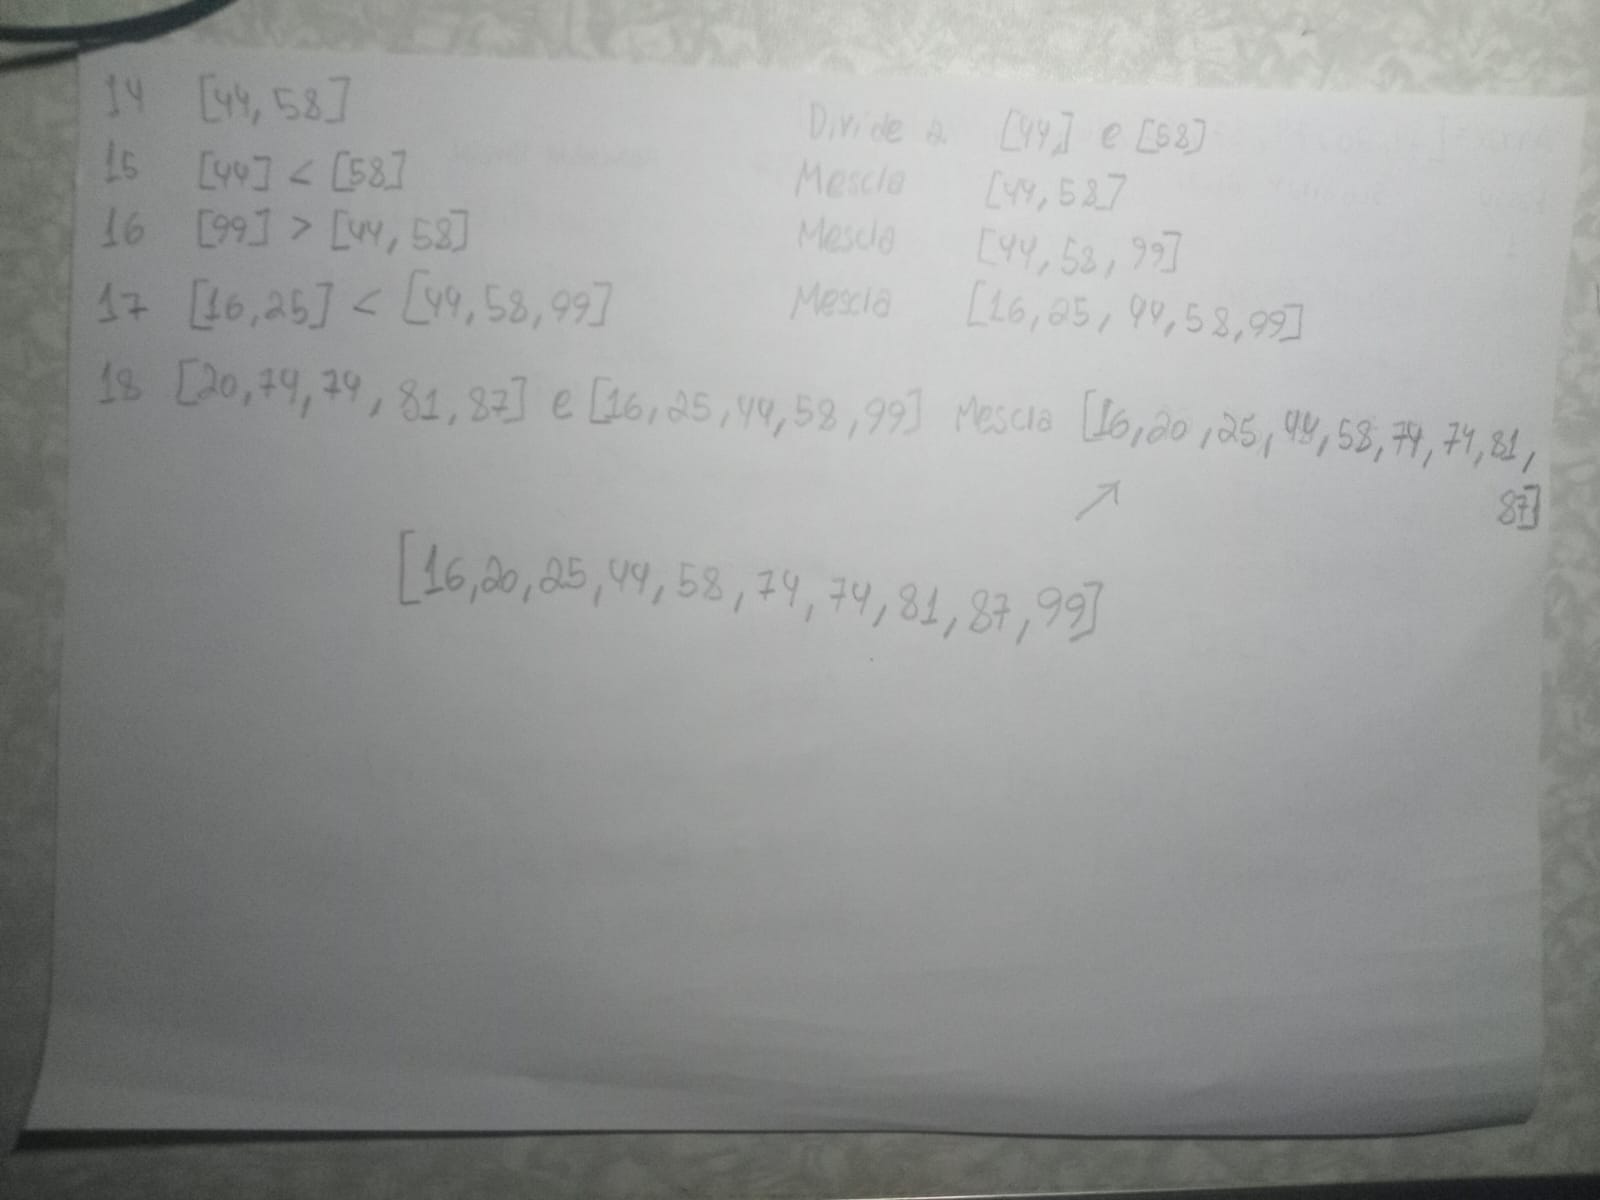 14 [44, 58] Divide 2 [44,] e [58]
15 [44] < [58] Mescla [44, 58]
16 [99] > [44, 58] Mescla [44, 58, 99]
17 [16, 25] < [44, 58, 99] Mescla [16, 25, 44, 58, 99]
18 [20, 74, 74, 81, 87] e [16, 25, 44, 58, 99] Mescla [16, 20, 25, 44, 58, 74, 74, 81,
87]
[16, 20, 25, 44, 58, 74, 74, 81, 87, 99]